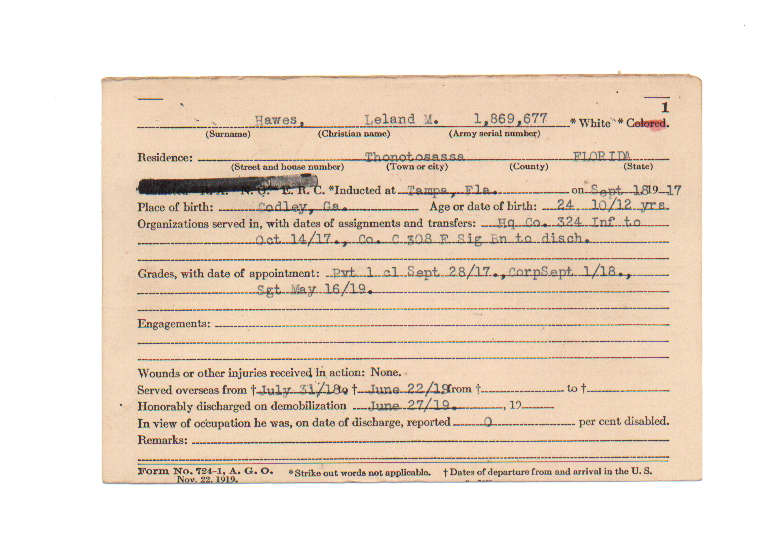 1
Hawes, Leland M. 1,869,677 * White * Colored.
(Surname) (Christian name) (Army serial number)
Residence: Thonotosassa FLORIDA
(Street and house number) (Town or city) (County) (State)
N. G. E. R. C. *Inducted at Tampa, Fla. on Sept 18 19-17
Place of birth: Codley, Ga. Age or date of birth: 24 10/12 yrs.
Organizations served in, with dates of assignments and transfers: Hq Co. 324 Inf to
Oct 14/17., Co. C 308 F Sig Bn to disch.
Grades, with date of appointment: Pvt 1 cl Sept 28/17., CorpSept 1/18.,
Sgt May 16/19.
Engagements:
Wounds or other injuries received in action: None.
Served overseas from † July 31/18 † June 22/19 from † to †
Honorably discharged on demobilization June 27/19. , 19
In view of occupation he was, on date of discharge, reported 0 per cent disabled.
Remarks:
Form No. 724-1, A. G. O. *Strike out words not applicable. † Dates of departure from and arrival in the U. S.
Nov. 22, 1919.